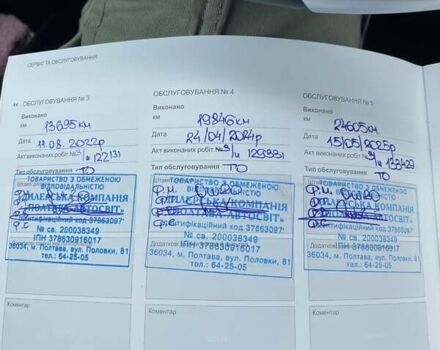 СЕРВІС ТА ОБСЛУГОВУВАННЯ
ОБСЛУГОВУВАННЯ № 3
Виконано
км 13695км
Дата 11.08.2022р
Акт виконаних робіт № 122131
Тип обслуговування ТО
ТОВАРИСТВО З ОБМЕЖЕНОЮ
ВІДПОВІДАЛЬНІСТЮ
ДИЛЕРСЬКА КОМПАНІЯ
ПОЛТАВА-АВТОСВІТ»
Ідентифікаційний код 37863097
№ св. 200038349
ІПН 378630916017
36034, м. Полтава, вул. Половки, 81
тел.: 64-25-05
Коментар
ОБСЛУГОВУВАННЯ № 4
Виконано
км 19846км
Дата 24/04/2024р
Акт виконаних робіт № 129331
Тип обслуговування ТО
ТОВАРИСТВО З ОБМЕЖЕНОЮ
КОМПАНІЯ
ПОЛТАВА-АВТОСВІТ»
Ідентифікаційний код 37863097
№ св. 200038349
ІПН 378630916017
36034, м. Полтава, вул. Половки, 81
тел.: 64-25-05
Коментар
ОБСЛУГОВУВАННЯ № 5
Виконано
км 24605км
Дата 15/05/2025р
Акт виконаних робіт № 133429
Тип обслуговування ТО
ТОВАРИСТВО З ОБМЕЖЕНОЮ
№ св. 200038349
ІПН 378630916017
36034, м. Полтава, вул. Половки, 81
тел.: 64-25-05
Коментар